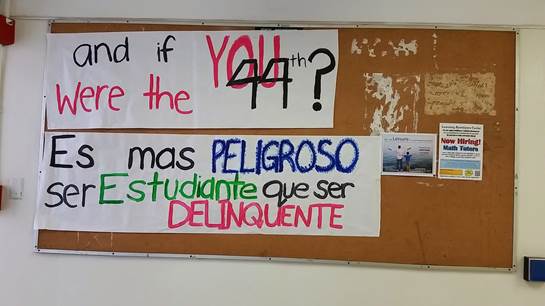 and if YOU
Were the 44th?
Es mas PELIGROSO
ser Estudiante que ser
DELINQUENTE
Now Hiring!
Math Tutors